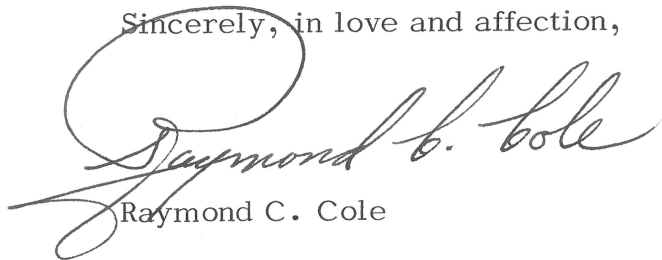 Sincerely, in love and affection,
Raymond C. Cole
Raymond C. Cole